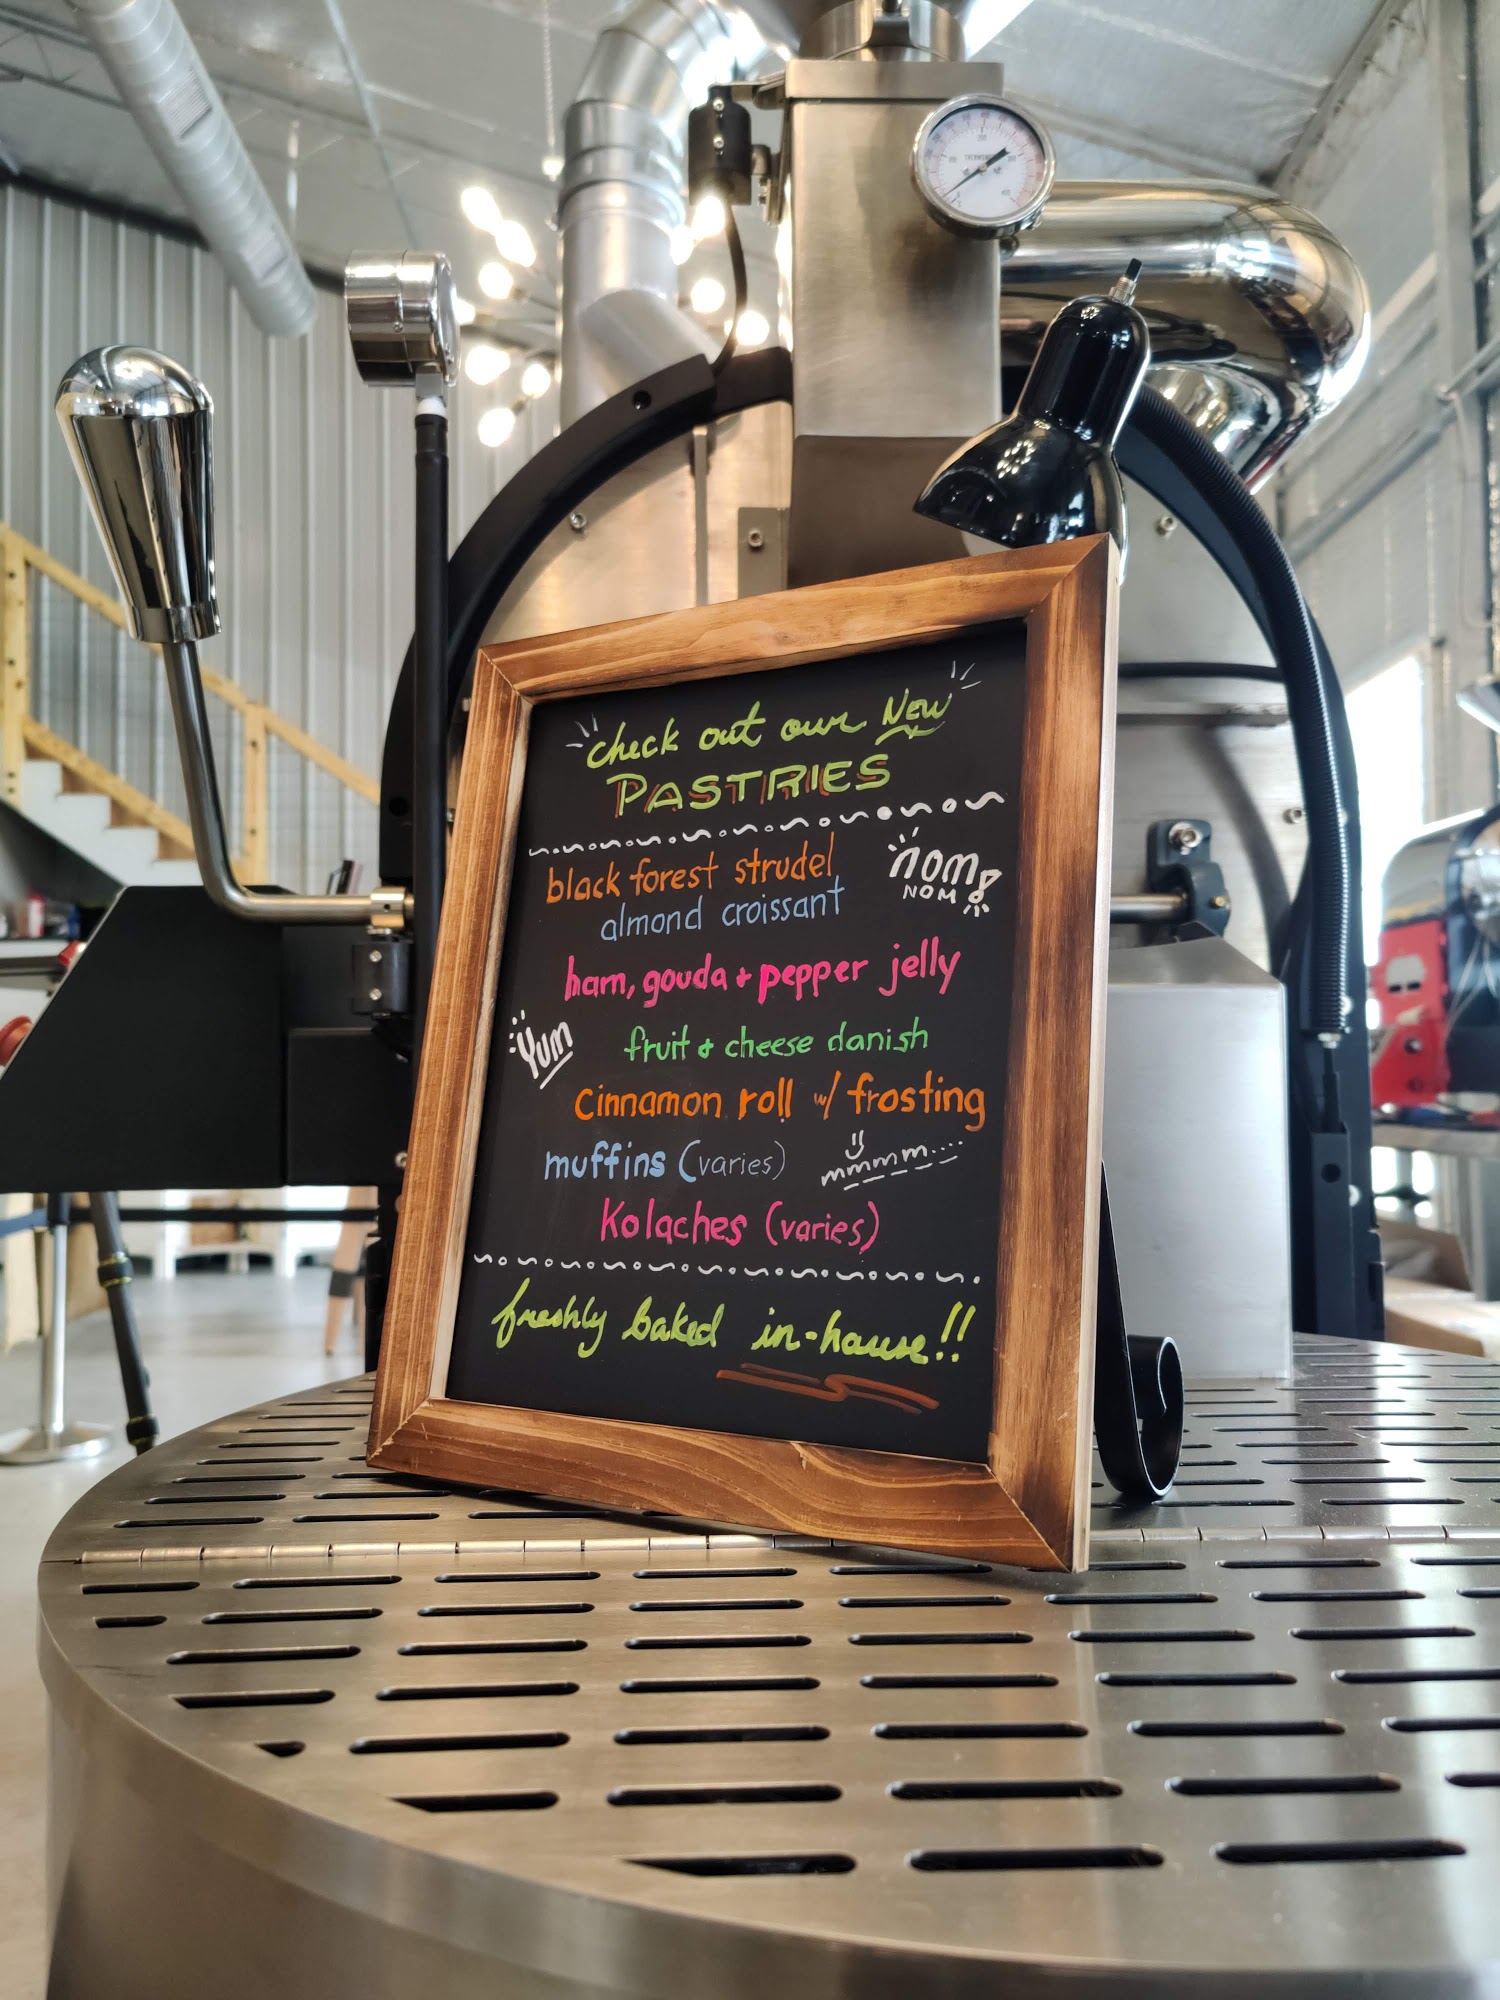 THERMOMETER
check out our New
PASTRIES
black forest strudel
nom
NOM!
almond croissant
ham, gouda + pepper jelly
Yum
fruit & cheese danish
cinnamon roll w/ frosting
muffins (varies)
mmmm....
Kolaches (varies)
freshly baked in-house!!